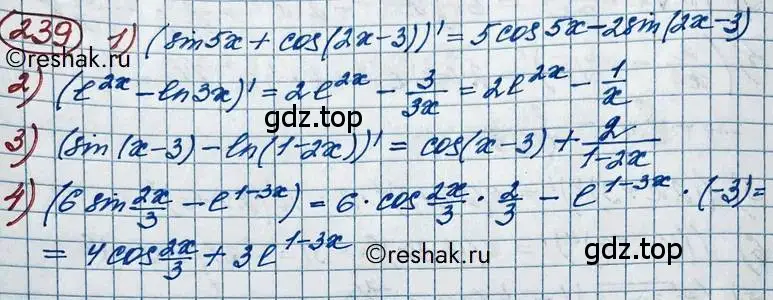 239 1) (sin5x + cos(2x-3))' = 5cos5x - 2sin(2x-3)
2) (e^{2x} - ln3x)' = 2e^{2x} - \frac{3}{3x} = 2e^{2x} - \frac{1}{x}
gdz.top gdz.top
3) (sin(x-3) - ln(1-2x))' = cos(x-3) + \frac{2}{1-2x}
4) (6 sin\frac{2x}{3} - e^{1-3x}) = 6 · cos\frac{2x}{3} · \frac{2}{3} - e^{1-3x} · (-3) =
= 4cos\frac{2x}{3} + 3e^{1-3x}
©reshak.ru ©reshak.ru